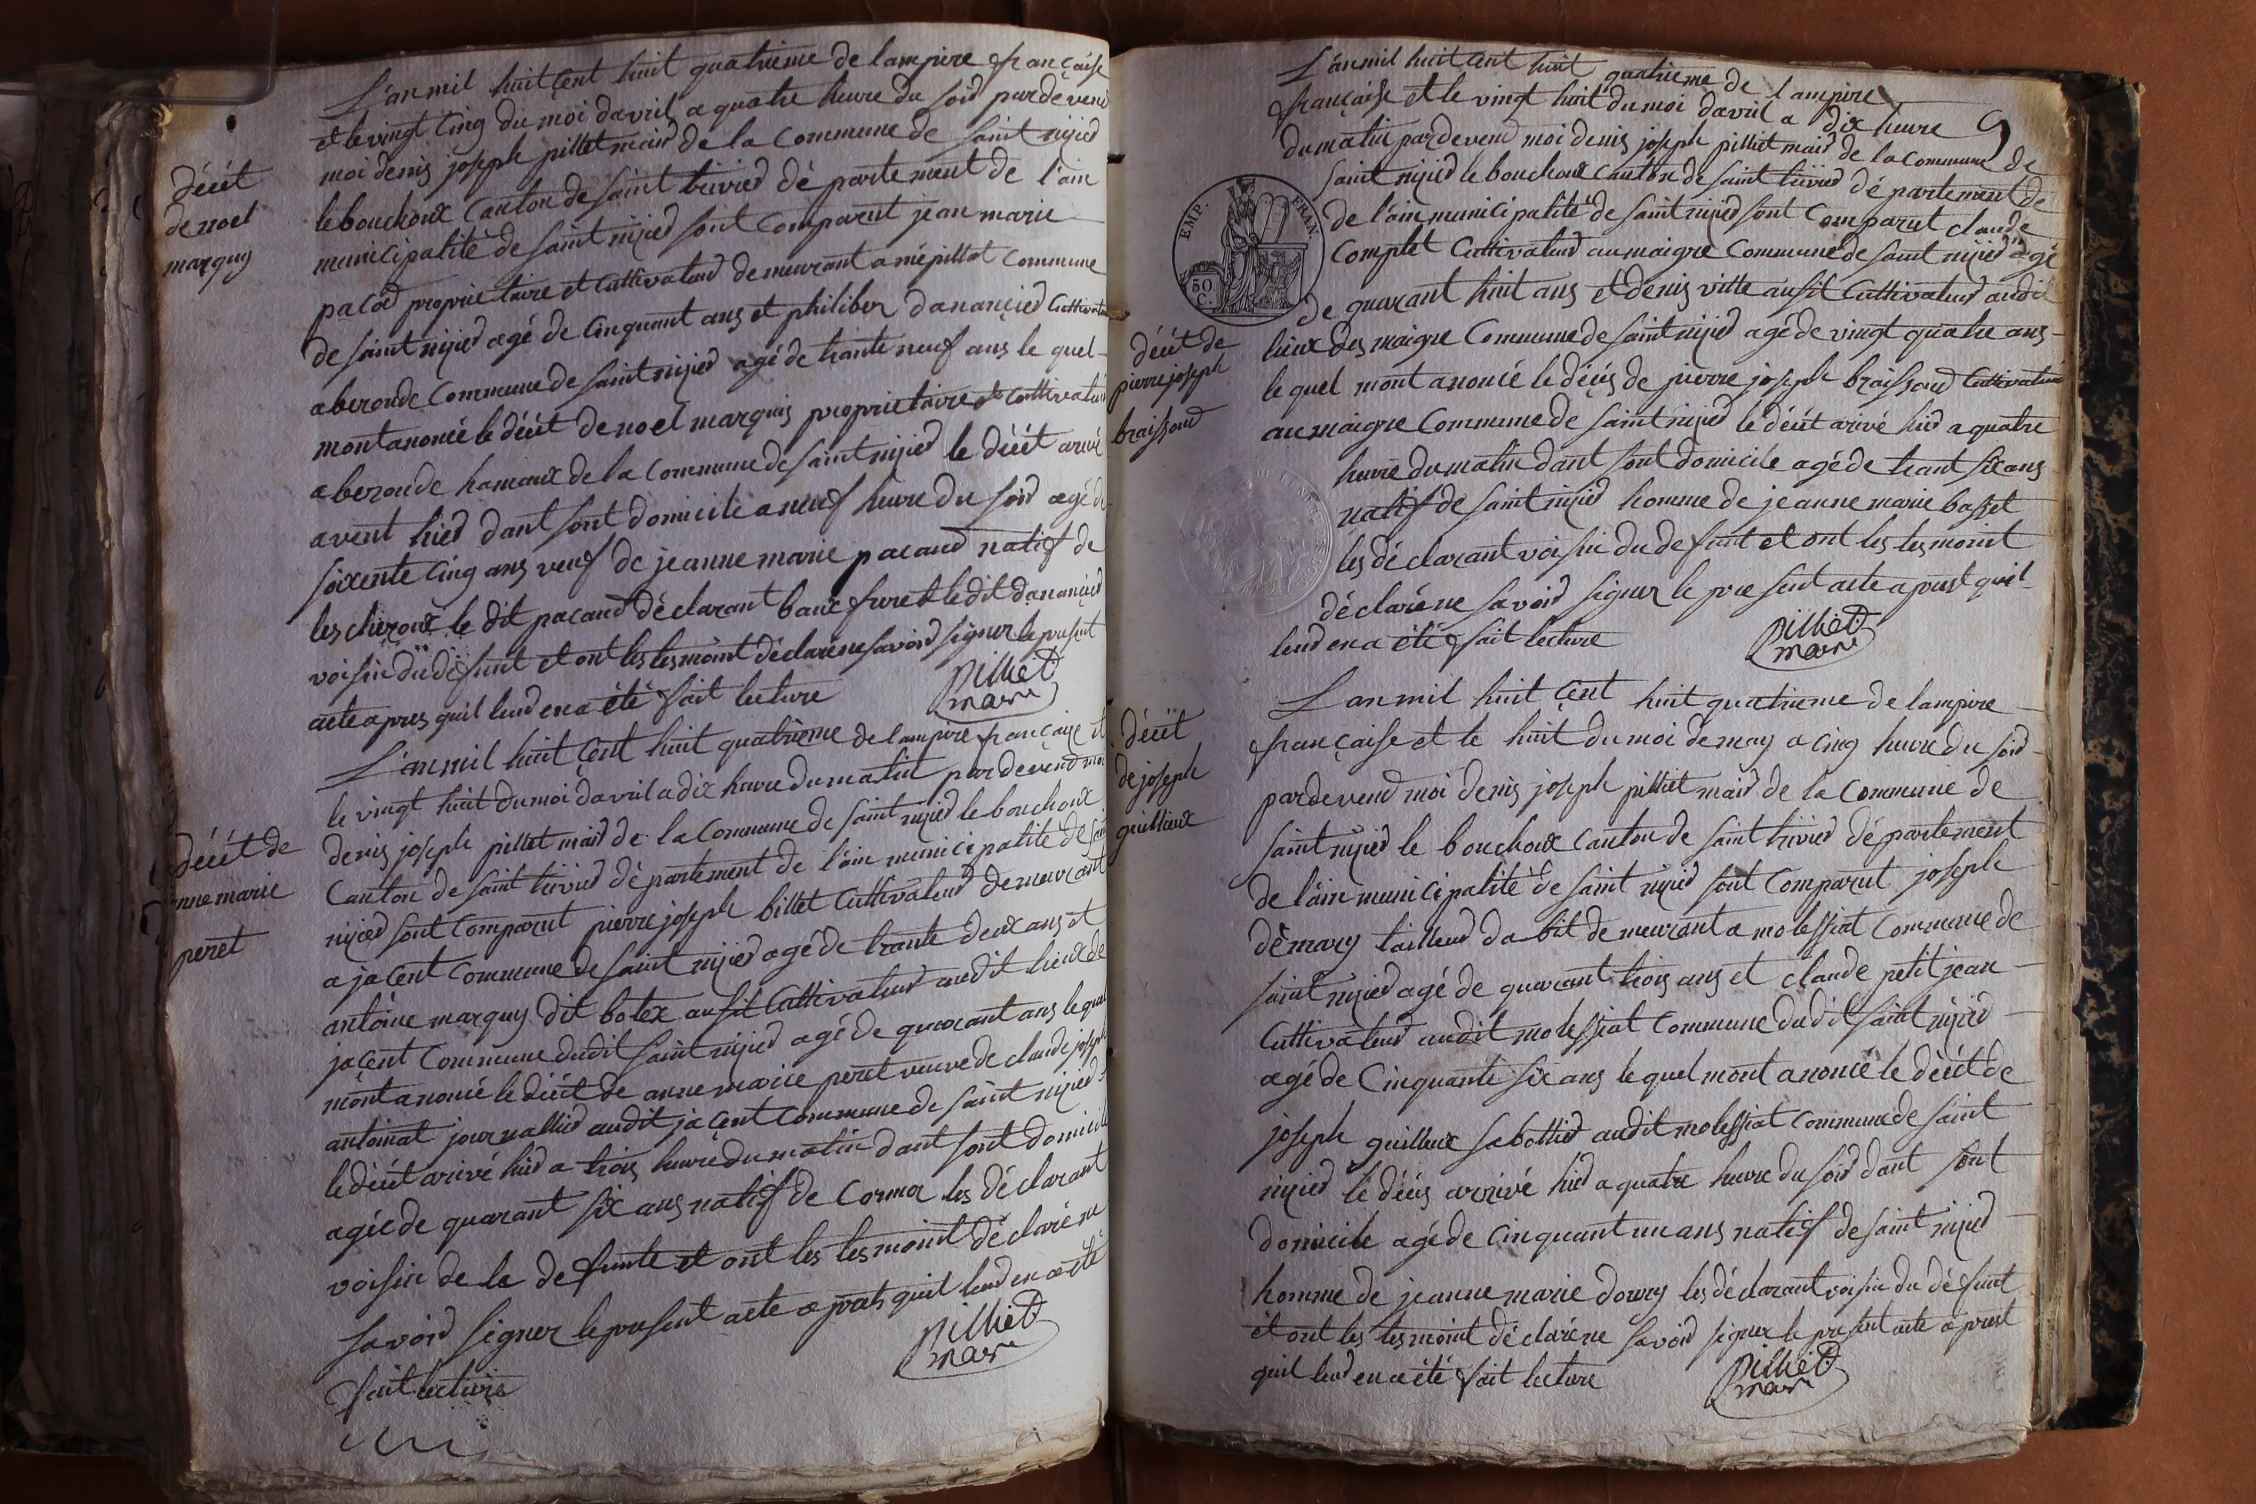 L'an mil huit cent huit quatrieme de lampire française
et le vingt cinq du moi davril a quatre heure du soir pardevend
moi denis joseph pilliet maird de la commune de saint nizied
le bouchoux canton de saint trivied département de l'ain
municipalité de saint nizied sont comparent jean marie
pacod proprietaire et cultivateud demeurant a mépillat commune
de saint nizied agé de cinquant ans et philiber danancied cultivateu
a beronde commune de saint nizied agé de trante neuf ans le quel
mont anoncé le décét de noel marquis proprietaire et cultivateu
a beronde hamaux de la commune de saint nizied le décét arivé
avent hied dant sont domicile a neuf heure du soid agé de
soixente cinq ans veuf de jeanne marie pacaud natif de
les chizoux le dit pacaud déclarant baux frure et le dit danancied
voisin du défunt et ont les tesmoint déclaré ne savoid signer le present
acte apres quil leud en a été fait lecture
pilliet
maire
décét
de noel
marquy
L'an mil huit cent huit quatrième de lampire française et
le vingt huit du moi davril a dix heure du matin pardevend moi
denis joseph pilliet maird de la commune de saint nizied le bouchoux
canton de saint trivied département de l'ain municipalité de saint
nizied sont comparut pierre joseph billet cultivateud demeurant
a jacent commune de saint nizied agé de trante deux ans et
antoine marquy dit botex ausit cultivateud audit lieux de
jacent commune dudit saint nizied agé de quarant ans le quel
mont anoncé le décét de anne marie peret veuve de claude joseph
antoinat journallied audit jacent commune de saint nizied
le décét arivé hied a trois heure du matin dant sont domicile
agée de quarant six ans natif de cormoz les déclarant
voisin de la defunte et ont les tesmoint déclaré ne
savoid signer le present acte a prets quil leud en a été
fait lecture
pilliet
maire
décét de
nne marie
peret
9
L'an mil huit cent huit quatrieme de lampire
française et le vingt huit du moi davril a dix heure
du matin pardevend moi denis joseph pilliet maird de la commune de
saint nizied le bouchoux canton de saint trivied département de
de l'ain municipalité de saint nizied sont comparut claude
complet cultivateud au maigre commune de saint nizied agé
de quarant huit ans et denis vitte ausit cultivateud audit
lieux des maigre commune de saint nizied agé de vingt quatre ans
le quel mont anoncé le décés de pierre joseph braissoud cultivateud
au maigre commune de saint nizied le décét arivé hied a quatre
heure du matin dant sont domicile agé de trant six ans
natif de saint nizied homme de jeanne marie basset
les déclarant voisin du defunt et ont les tesmoint
déclaré ne savoid signer le present acte a prest quil
leud en a été fait lecture
pilliet
maire
EMP. FRAN.
50
C.
décét de
pierre joseph
braissoud
L'an mil huit cent huit quatrieme de lampire
française et le huit du moi de may a cinq heure du soid
pardevend moi denis joseph pilliet maird de la commune de
saint nizied le bouchoux canton de saint trivied département
de l'ain municipalité de saint nizied sont comparut joseph
démary tailleud dabit demeurant a molessiat commune de
saint nizied agé de quarant trois ans et claude petit jean
cultivateud audit molessiat commune dudit saint nizied
agé de cinquante six ans le quel mont anoncé le décét de
joseph guilleux sabottied audit molessiat commune de saint
nizied le décés arrivé hied a quatre heure du soid dant sont
domicile agé de cinquant un ans natif de saint nizied
homme de jeanne marie dowry les déclarant voisin du défunt
et ont les tesmoint déclaré ne savoid signer le present acte a prest
quil leud en a été fait lecture
pilliet
maire
décét
de joseph
guilliaux